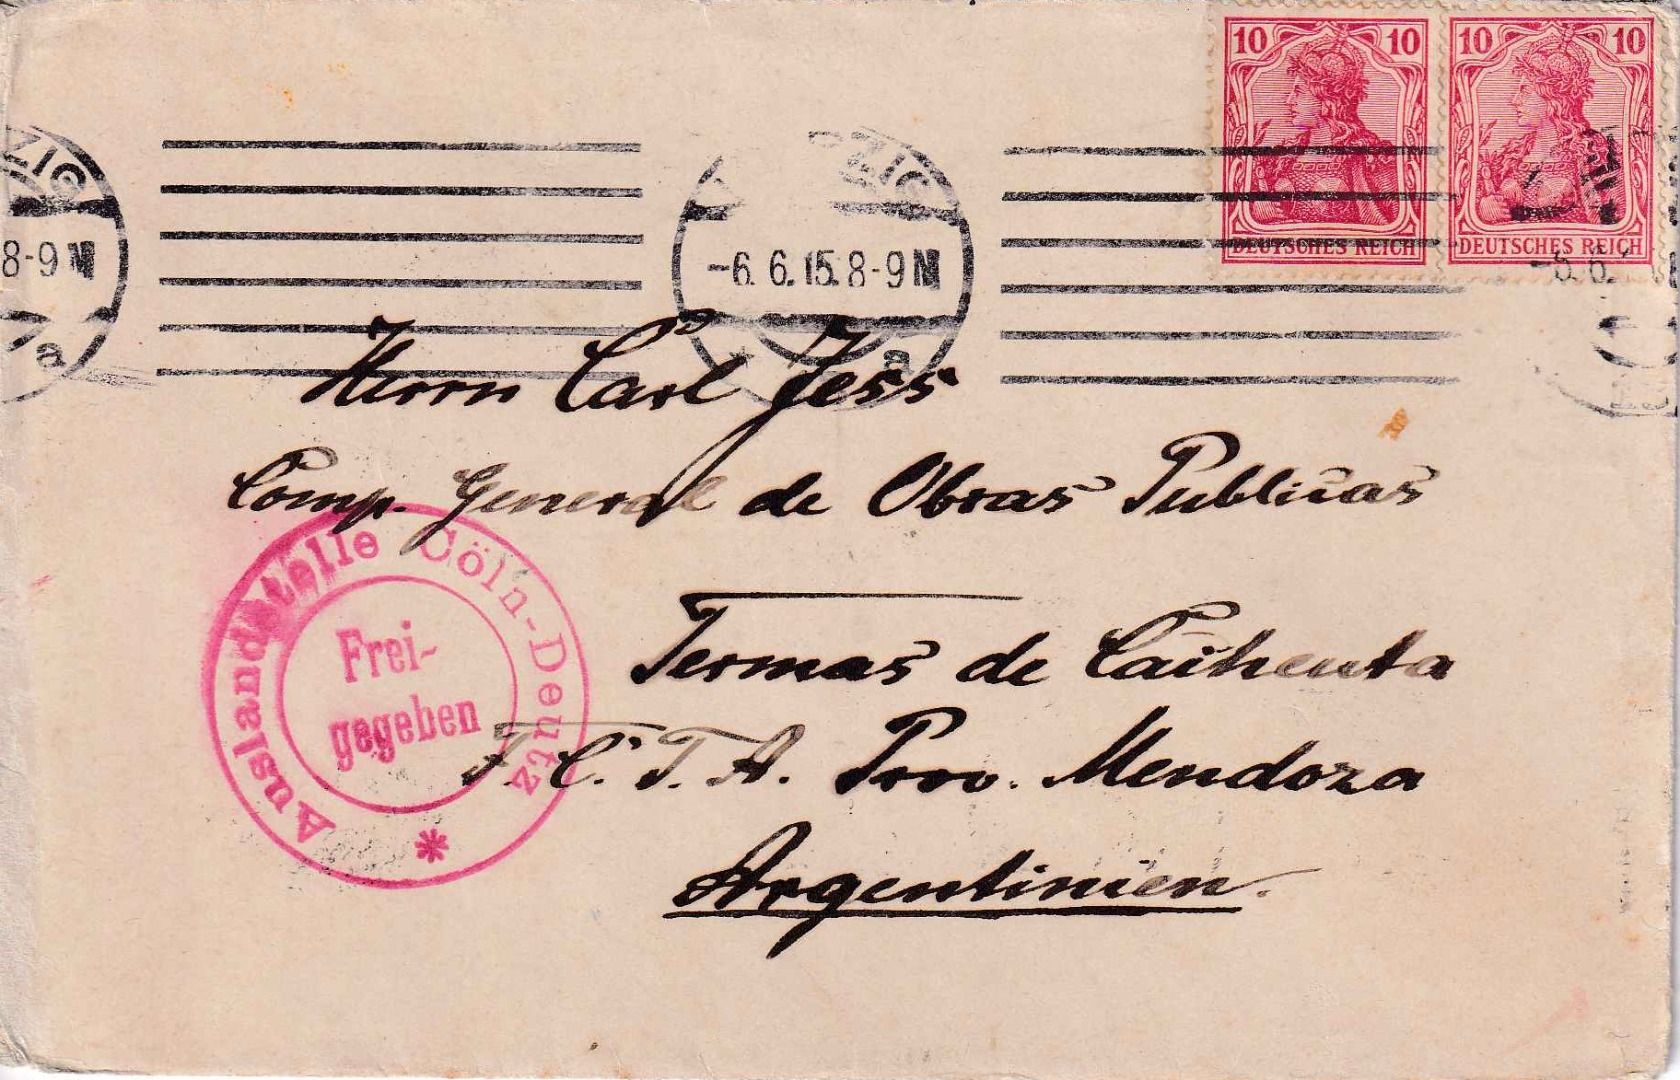 10 10 10 10
DEUTSCHES REICH DEUTSCHES REICH
ZIG ZIG
8-9 N -6.6.15.8-9 N -6.6.
a a
Herrn Carl Jess
Comp. General de Obras Publicas
Termas de Caihenta
F. C. T. A. Prov. Mendoza
Argentinien.
Auslandstelle Cöln-Deutz
Frei-
gegeben
*